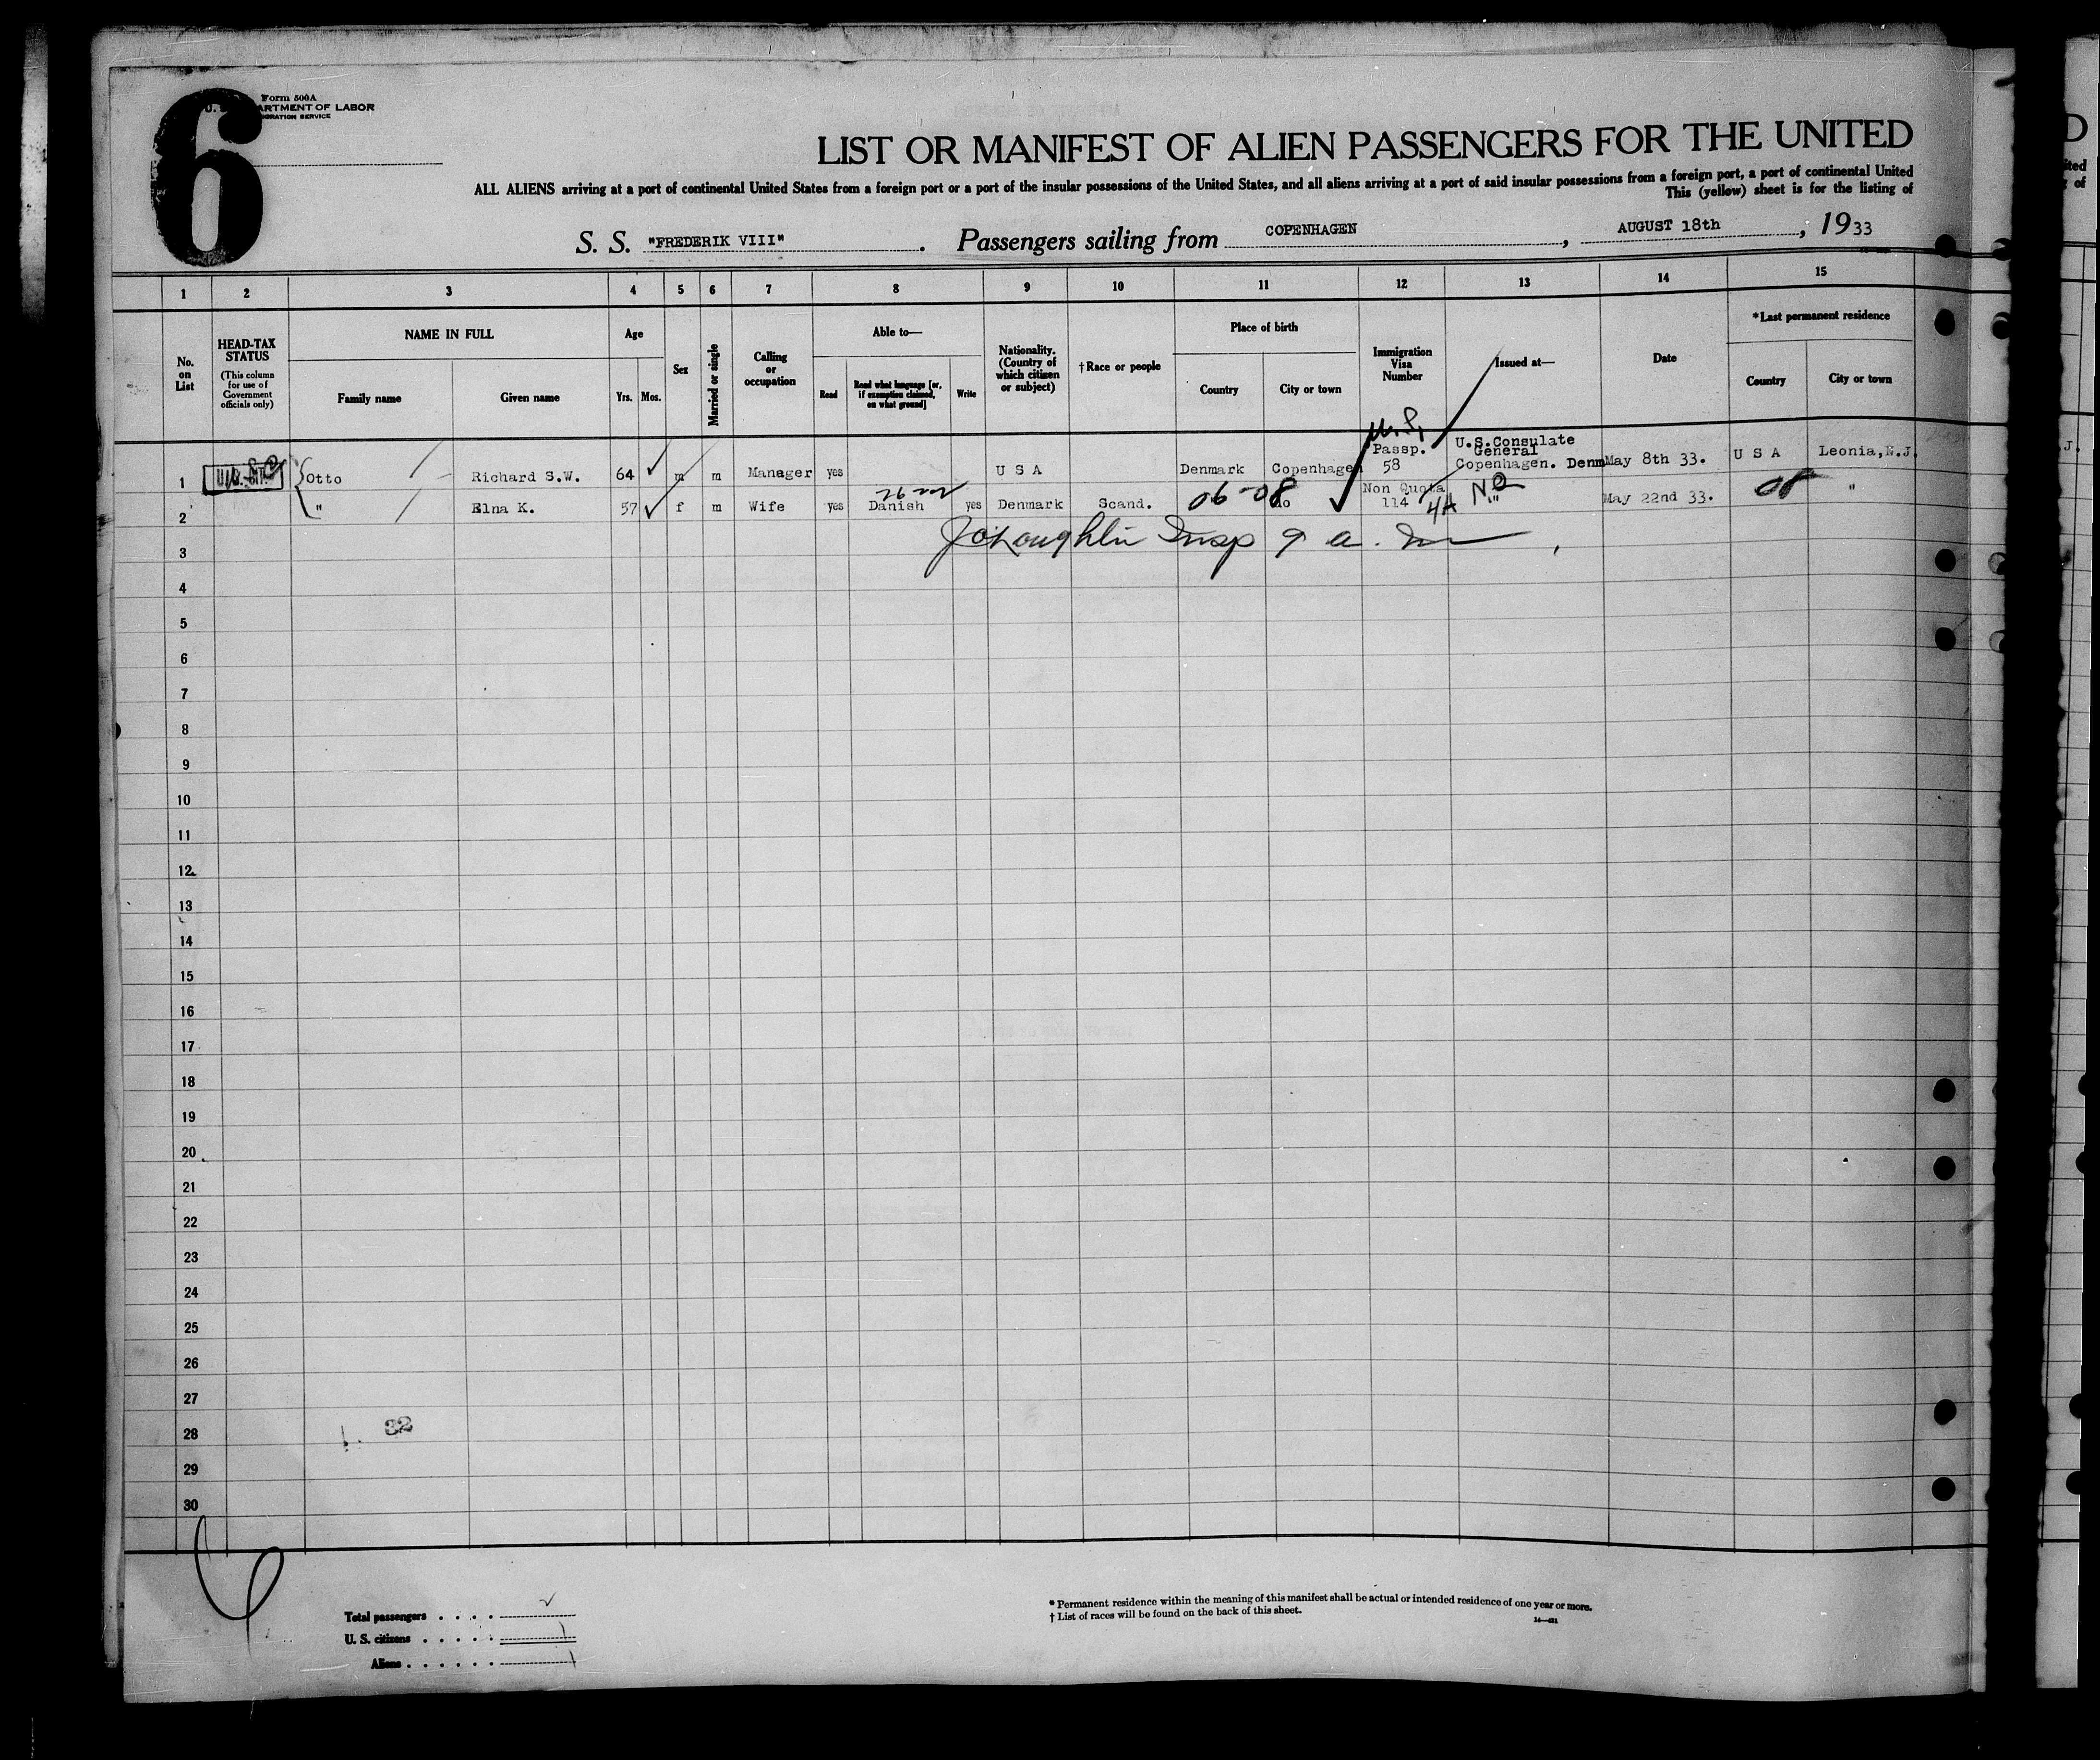 6
Form 500A
U. S. DEPARTMENT OF LABOR
IMMIGRATION SERVICE
LIST OR MANIFEST OF ALIEN PASSENGERS FOR THE UNITED
ALL ALIENS arriving at a port of continental United States from a foreign port or a port of the insular possessions of the United States, and all aliens arriving at a port of said insular possessions from a foreign port, a port of continental United
This (yellow) sheet is for the listing of
S. S. "FREDERIK VIII" . Passengers sailing from COPENHAGEN , AUGUST 18th , 1933
1 2 3 4 5 6 7 8 9 10 11 12 13 14 15
No. on List
HEAD-TAX STATUS (This column for use of Government officials only)
NAME IN FULL
Family name Given name
Age
Yrs. Mos.
Sex
Married or single
Calling or occupation
Able to—
Read Read what language [or, if exemption claimed, on what ground] Write
Nationality. (Country of which citizen or subject)
†Race or people
Place of birth
Country City or town
Immigration Visa Number
Issued at—
Date
*Last permanent residence
Country City or town
1 Otto Richard S.W. 64 m m Manager yes U S A Denmark Copenhagen Passp. 58 U.S.Consulate General Copenhagen. Denm May 8th 33. U S A Leonia, N.J.
2 " Elna K. 57 f m Wife yes Danish yes Denmark Scand. 06-08 do Non Quota 114 4A NQ " May 22nd 33. 08 "
3 J O'Loughlin Insp 9 a.m
4
5
6
7
8
9
10
11
12
13
14
15
16
17
18
19
20
21
22
23
24
25
26
27
28 32
29
30
Total passengers . . . . 2
U. S. citizens . . . . . 1
Aliens . . . . . . 1
* Permanent residence within the meaning of this manifest shall be actual or intended residence of one year or more.
† List of races will be found on the back of this sheet.